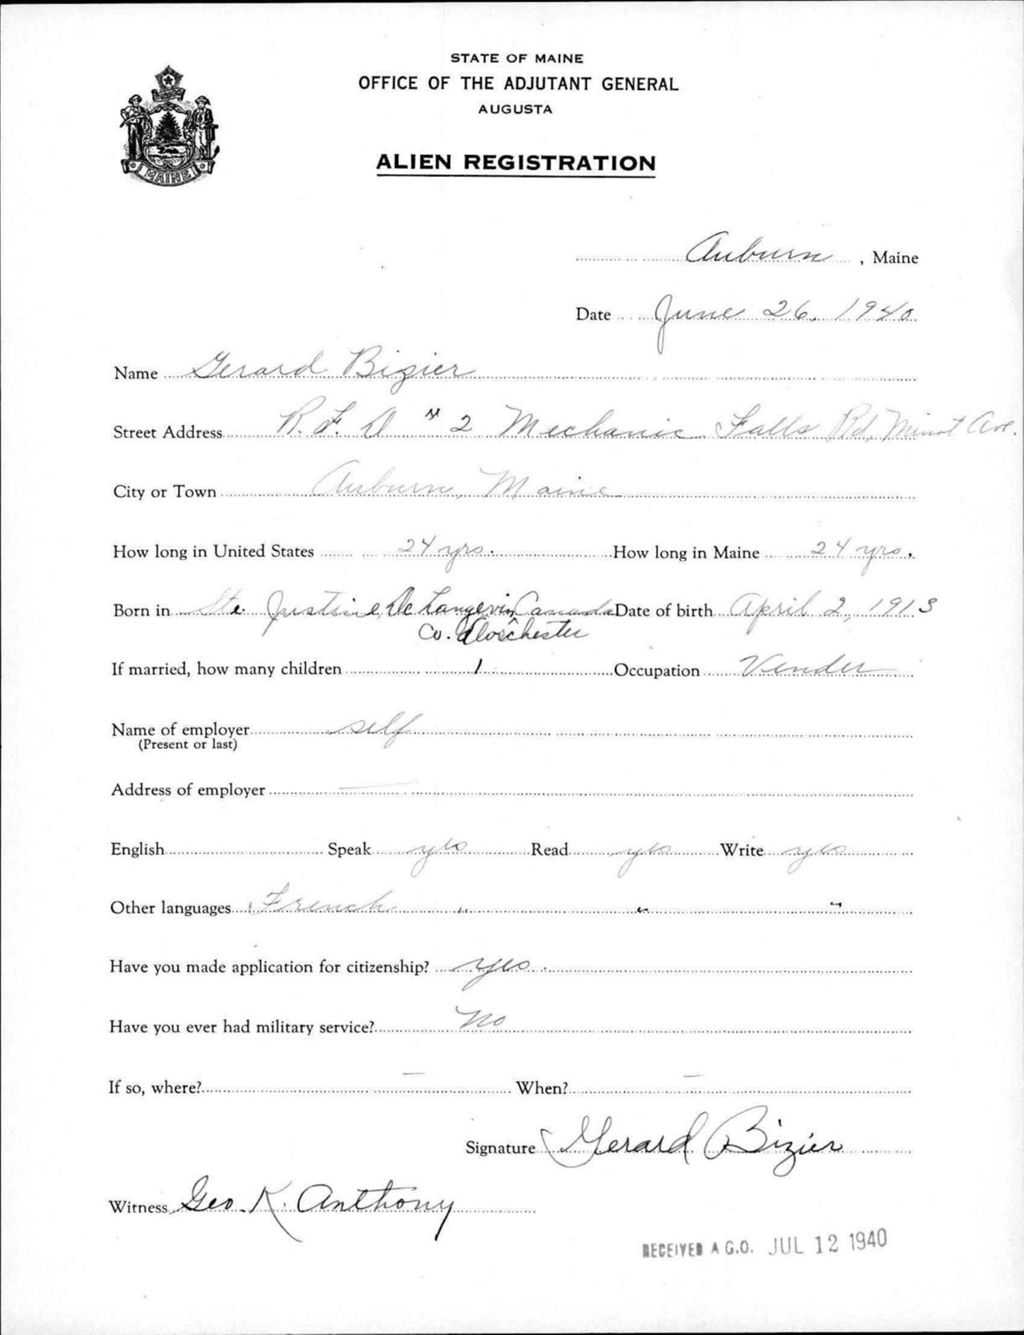 STATE OF MAINE
OFFICE OF THE ADJUTANT GENERAL
AUGUSTA
ALIEN REGISTRATION
MAINE
Auburn, Maine
Date June 26, 1940
Name Gerard Bizier
Street Address R.F.D #2 Mechanic Falls Rd, Minot Ave.
City or Town Auburn, Maine
How long in United States 24 yrs. How long in Maine 24 yrs.
Born in Ste. Justine De Langevin Canada Date of birth April 2, 1913
Co. Dorchester
If married, how many children 1 Occupation Vender
Name of employer self
(Present or last)
Address of employer —
English Speak yes Read yes Write yes
Other languages French " " "
Have you made application for citizenship? yes
Have you ever had military service? No
If so, where? — When? —
Signature Gerard Bizier
Witness Geo. K. Anthony
RECEIVED A.G.O. JUL 12 1940